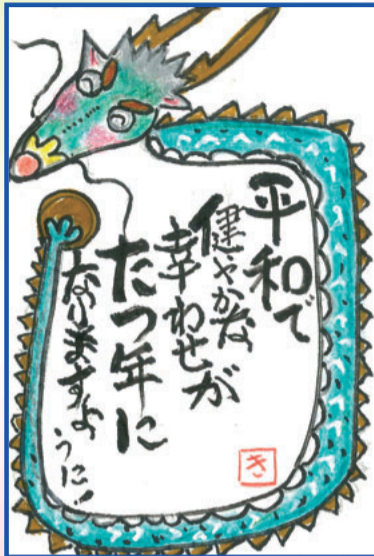 平和で
健やかな
幸わせが
たつ年に
なりますよ
うに!!
き